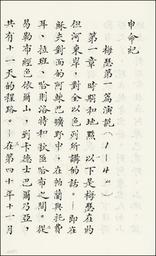 申命紀
梅瑟第一篇演說(1—4)
第一章 時期和地點 以下是梅瑟在約
但河東岸,對全以色列所講的話。—即在
蘇夫對面的阿辣巴曠野中,在帕蘭與托費
耳、拉班、哈則洛特和狄匝哈布之間。從
曷勒布經色依爾山,到卡德士巴爾乃亞,
共有十一天的程路。—在第四十年十一月